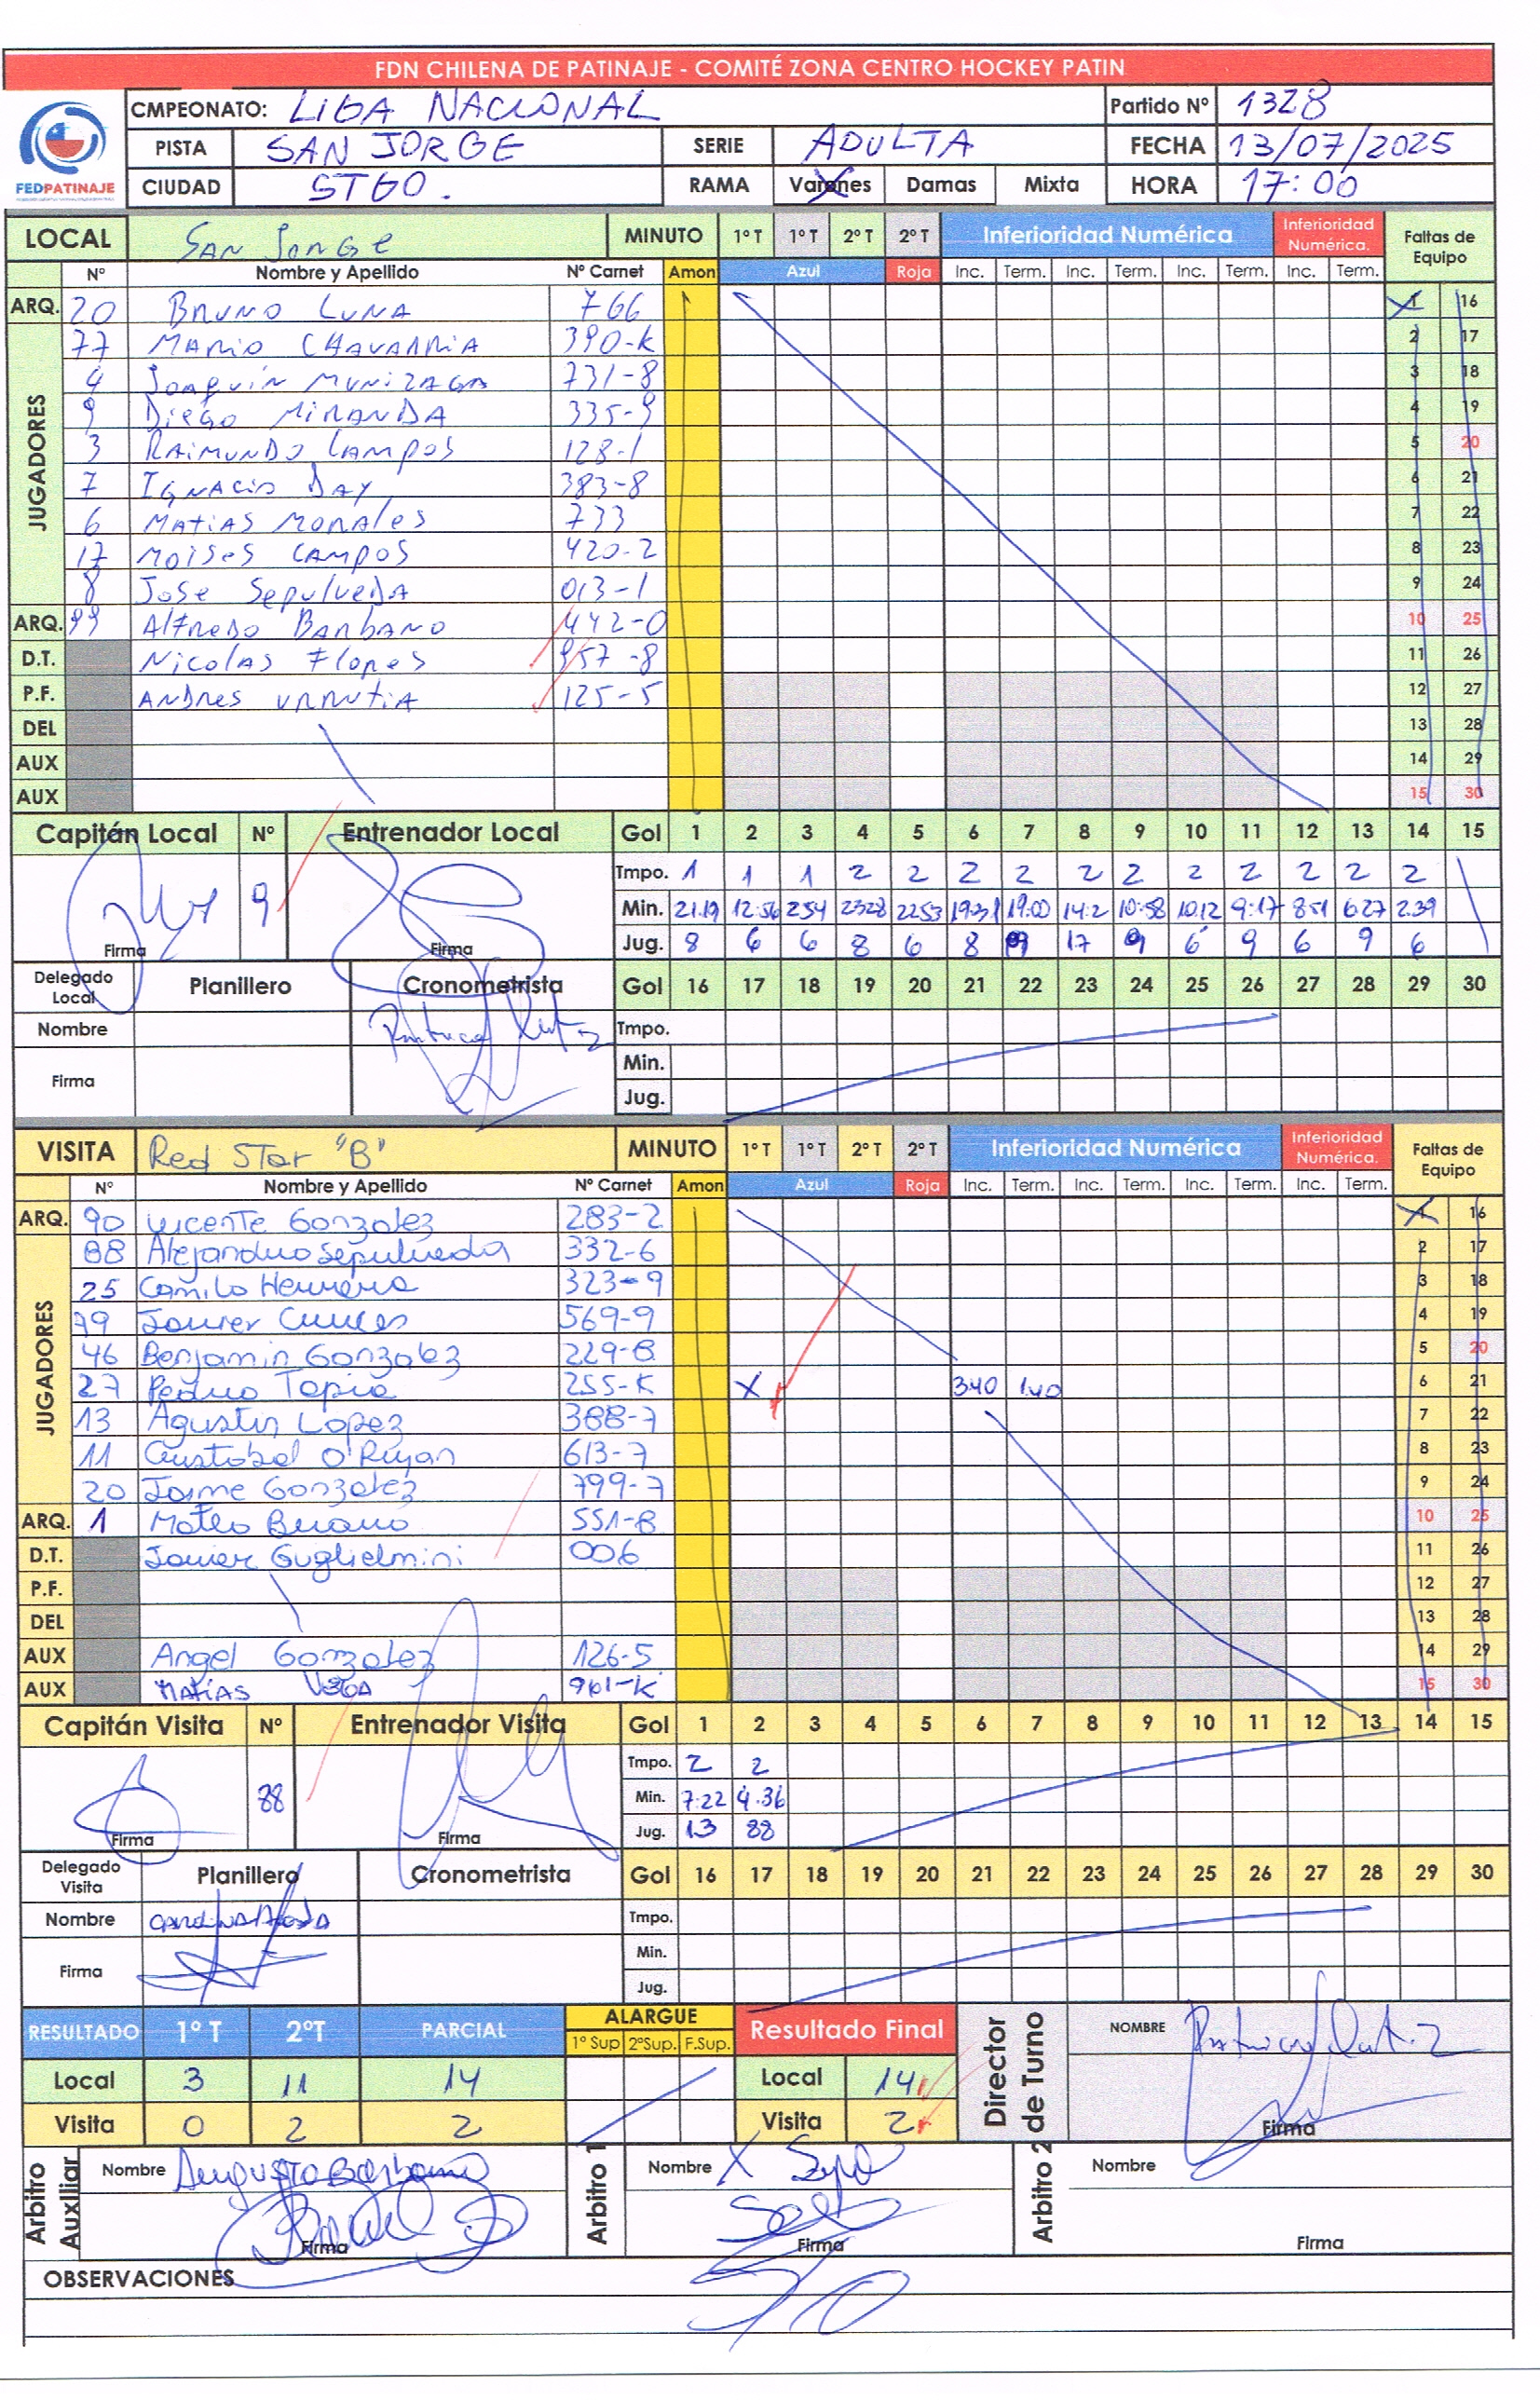 FDN CHILENA DE PATINAJE - COMITÉ ZONA CENTRO HOCKEY PATIN
FEDPATINAJE
CMPEONATO: LIGA NACIONAL Partido Nº 1328
PISTA SAN JORGE SERIE ADULTA FECHA 13/07/2025
CIUDAD STGO. RAMA Varones Damas Mixta HORA 17:00
LOCAL SAN JORGE MINUTO 1º T 1º T 2º T 2º T Inferioridad Numérica Inferioridad Numérica. Faltas de Equipo
Nº Nombre y Apellido Nº Carnet Amon Azul Roja Inc. Term. Inc. Term. Inc. Term. Inc. Term.
JUGADORES
ARQ. 20 BRUNO LUNA 766 1 16
77 MARIO CHAVARRIA 390-K 2 17
4 JOAQUIN MUNIZAGA 731-8 3 18
9 DIEGO MIRANDA 335-9 4 19
3 RAIMUNDO CAMPOS 128-1 5 20
7 IGNACIO DAY 383-8 6 21
6 MATIAS MORALES 733 7 22
17 MOISES CAMPOS 420-2 8 23
8 JOSE SEPULVEDA 013-1 9 24
ARQ. 99 ALFREDO BARBANO 442-0 10 25
D.T. NICOLAS FLORES 957-8 11 26
P.F. ANDRES URRUTIA 125-5 12 27
DEL 13 28
AUX 14 29
AUX 15 30
Capitán Local Nº Entrenador Local Gol 1 2 3 4 5 6 7 8 9 10 11 12 13 14 15
Tmpo. 1 1 1 2 2 2 2 2 2 2 2 2 2 2
9 Min. 21.19 12:56 2:54 23:28 22:53 19:31 19:00 14:2 10:58 10:12 9:17 8:51 6:27 2.39
Firma Firma Jug. 8 6 6 8 6 8 9 17 9 6 9 6 9 6
Delegado Local Planillero Cronometrista Gol 16 17 18 19 20 21 22 23 24 25 26 27 28 29 30
Nombre Tmpo.
Firma Min.
Jug.
VISITA Red Star "B" MINUTO 1º T 1º T 2º T 2º T Inferioridad Numérica Inferioridad Numérica. Faltas de Equipo
Nº Nombre y Apellido Nº Carnet Amon Azul Roja Inc. Term. Inc. Term. Inc. Term. Inc. Term.
JUGADORES
ARQ. 90 Vicente Gonzalez 283-2 1 16
88 Alejandro Sepulveda 332-6 2 17
25 Camilo Herrera 323-9 3 18
79 Javier 569-9 4 19
46 Benjamin Gonzalez 229-8 5 20
27 Pedro Tapia 255-K X 340 1.40 6 21
13 Agustin Lopez 388-7 7 22
11 Cristobal O'Ryan 613-7 8 23
20 Jaime Gonzalez 799-7 9 24
ARQ. 1 Mateo 551-8 10 25
D.T. Javier Guglielmini 006 11 26
P.F. 12 27
DEL 13 28
AUX Angel Gonzalez 126-5 14 29
AUX MATÍAS VEGA 961-K 15 30
Capitán Visita Nº Entrenador Visita Gol 1 2 3 4 5 6 7 8 9 10 11 12 13 14 15
Tmpo. 2 2
88 Min. 7:22 4.36
Firma Firma Jug. 13 88
Delegado Visita Planillero Cronometrista Gol 16 17 18 19 20 21 22 23 24 25 26 27 28 29 30
Nombre Tmpo.
Firma Min.
Jug.
RESULTADO 1º T 2ºT PARCIAL ALARGUE Resultado Final Director de Turno NOMBRE
1º Sup 2ºSup. F.Sup.
Local 3 11 14 Local 14
Visita 0 2 2 Visita 2 Firma
Arbitro Auxiliar Nombre Arbitro 1 Nombre Arbitro 2 Nombre
Firma Firma Firma
OBSERVACIONES